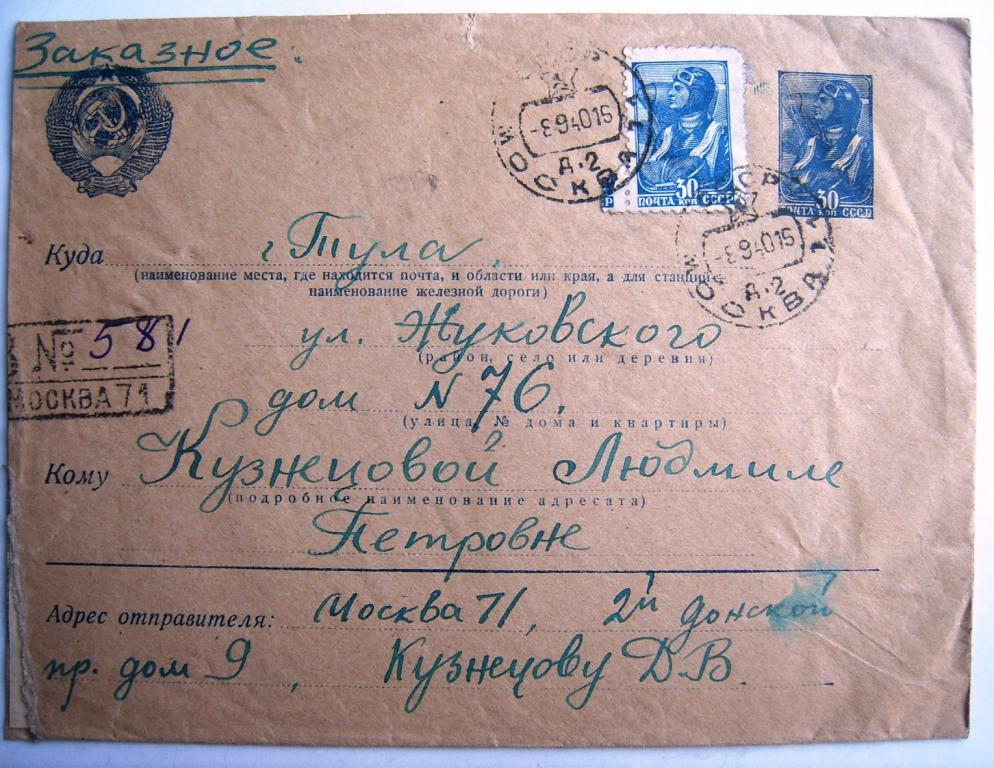 Заказное.
СССР
-8940.16
Д.2
МОСКВА 71
30
ПОЧТА коп СССР
30
ПОЧТА коп СССР
СССР
-8940.16
Д.2
МОСКВА 71
Куда г Тула,
(наименование места, где находится почта, и области или края, а для станций—
наименование железной дороги)
ул. Жуковского
(район, село или деревня)
№ 581
МОСКВА 71
дом N 76,
(улица, № дома и квартиры)
Кому Кузнецовой Людмиле
(подробное наименование адресата)
Петровне
Адрес отправителя: Москва 71, 2й Донской
пр. дом 9, Кузнецову Д.В.